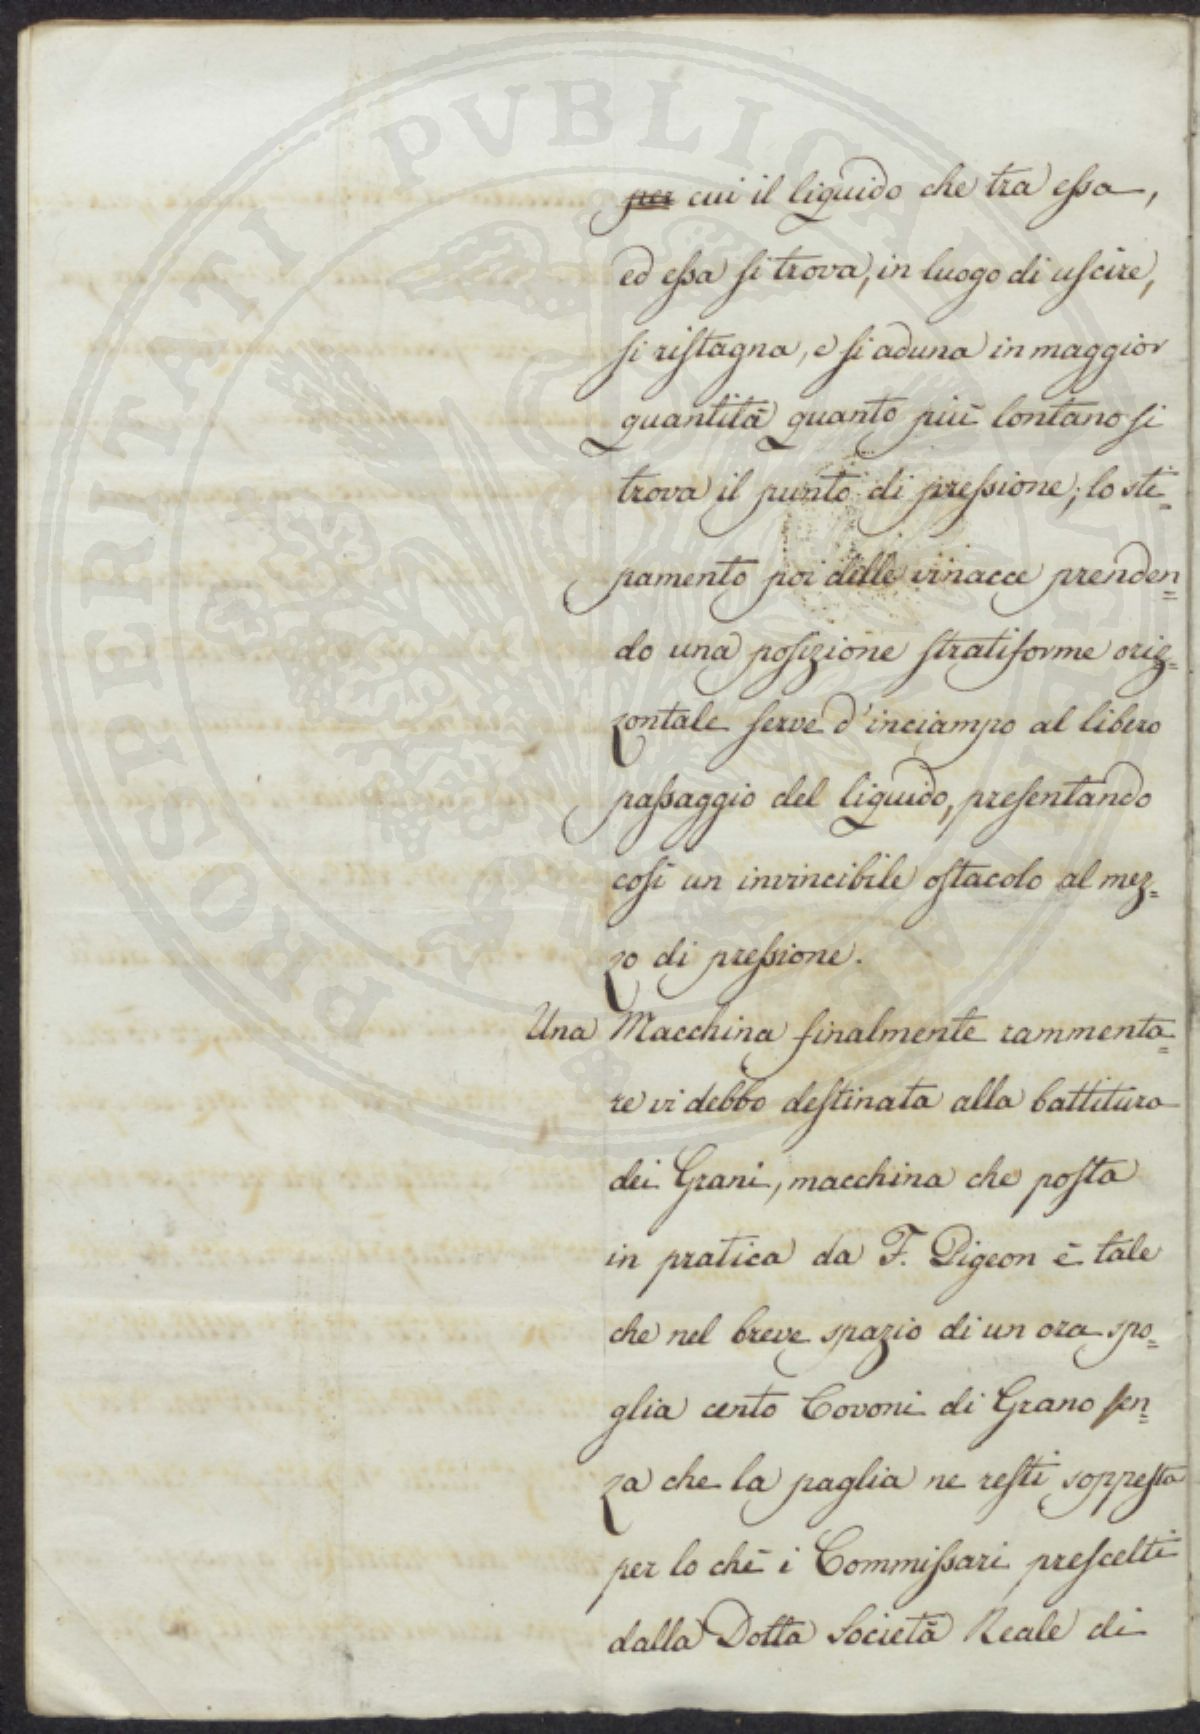 PROSPERITATI PVBLICAE
per cui il liquido che tra essa,
ed essa si trova, in luogo di uscire,
si ristagna, e si aduna in maggior
quantità quanto più lontano si
trova il punto di pressione; lo sti=
pamento poi delle vinacce prenden=
do una posizione stratiforme oriz=
zontale serve d'inciampo al libero
passaggio del liquido, presentando
così un invincibile ostacolo al mez=
zo di pressione.
Una Macchina finalmente rammenta=
re vi debbo destinata alla battitura
dei Grani, macchina che posta
in pratica da F. Pigeon è tale
che nel breve spazio di un ora spo=
glia cento Covoni di Grano sen=
za che la paglia ne resti soppesta
per lo chè i Commissari prescelti
dalla Dotta Società Reale di